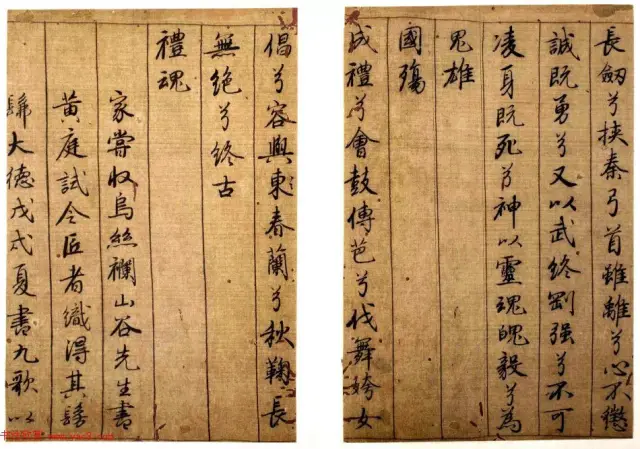 長劒兮挟秦弓首雖離兮心不懲
誠既勇兮又以武終剛强兮不可
凌身既死兮神以靈魂魄毅兮為
鬼雄
國殤
成禮兮會鼓傳芭兮代舞姱女
倡兮容與東春蘭兮秋鞠長
無絶兮終古
禮魂
家嘗収烏絲襴山谷先生書
黃庭試令匠者織得其髣
髴大德戊戌夏書九歌以